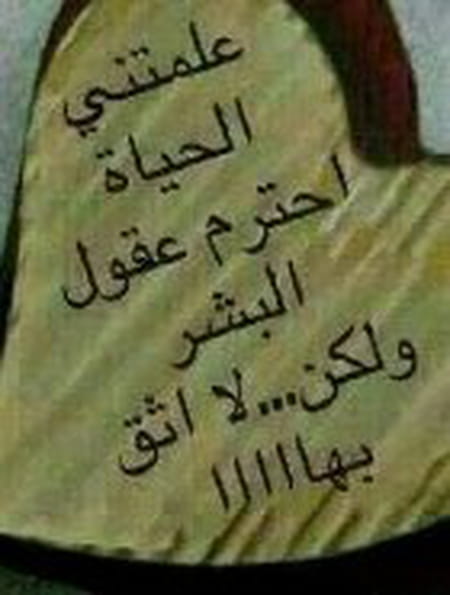 علمتني
الحياة
احترم عقول
البشر
ولكن...لا اثق
بهااااا